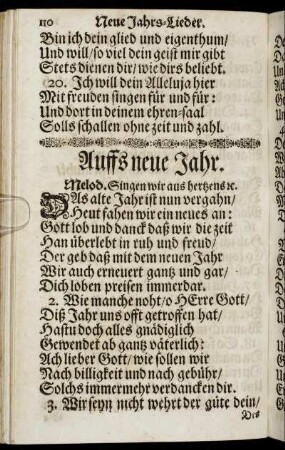 110 Neue Jahrs-Lieder.
Bin ich dein glied und eigenthum/
Und will/ so viel dein geist mir gibt
Stets dienen dir/ wie dirs beliebt.
20. Ich will dein Alleluja hier
Mit freuden singen für und für:
Und dort in deinem ehren-saal
Solls schallen ohne zeit und zahl.
Auffs neue Jahr.
Melod. Singen wir aus hertzens ꝛc.
DAs alte Jahr ist nun vergahn/
Heut fahen wir ein neues an:
Gott lob und danck daß wir die zeit
Han überlebt in ruh und freud/
Der geb daß mit dem neuen Jahr
Wir auch erneuert gantz und gar/
Dich loben preisen immerdar.
2. Wie manche noht/ o HErre Gott/
Diß Jahr uns offt getroffen hat/
Hastu doch alles gnädiglich
Gewendet ab gantz väterlich:
Ach lieber Gott/ wie sollen wir
Nach billigkeit und nach gebühr/
Solchs immermehr verdancken dir.
3. Wir seyn nicht wehrt der güte dein/
Des